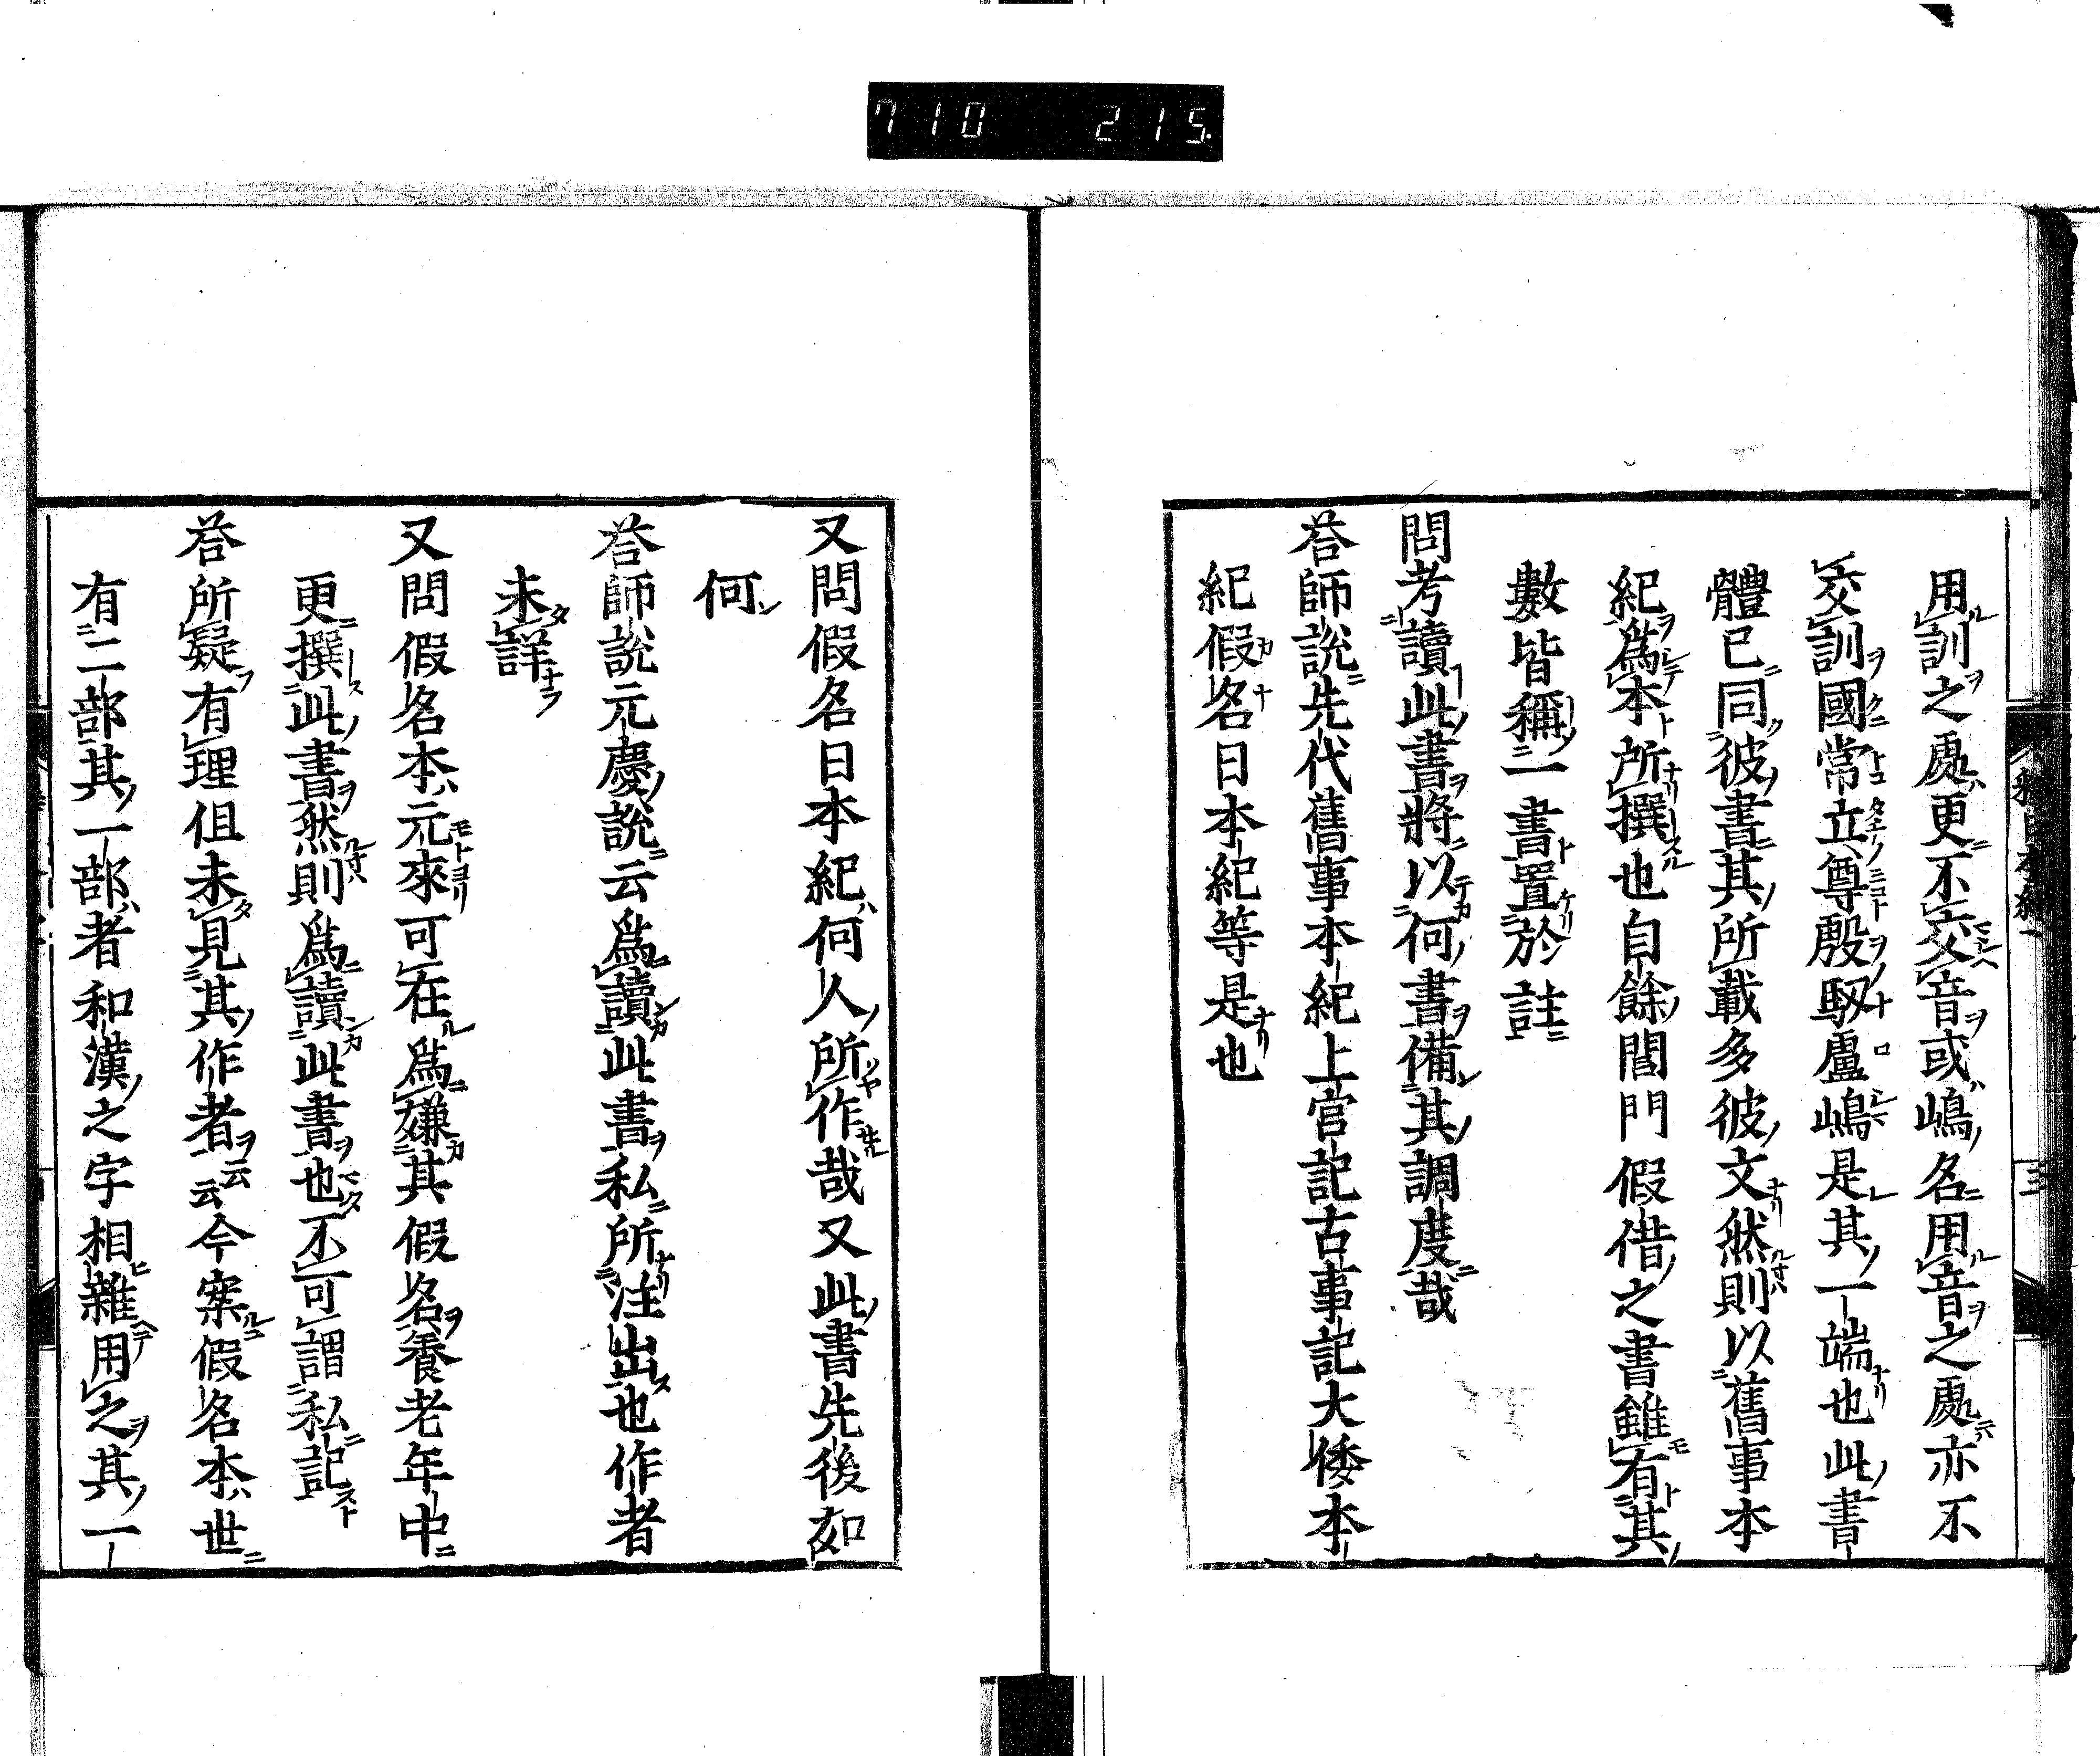 710 215
用訓之處更不交音或嶋名用音之處亦不
交訓國常立尊殷馭盧嶋是其一端也此書
體已同彼書其所載多彼文然則以舊事本
紀爲本所撰也自餘閤門假借之書雖有其
數皆稱一書置於註
問考讀此書將以何書備其調度哉
荅師說先代舊事本紀上宮記古事記大倭本
紀假名日本紀等是也
又問假名日本紀何人所作哉又此書先後如
何
荅師說元慶說云爲讀此書私所注出也作者
未詳
又問假名本元來可在爲嫌其假名養老年中
更撰此書然則爲讀此書也不可謂私記
荅所疑有理但未見其作者云云今案假名本世
有二部其一部者和漢之字相雜用之其一